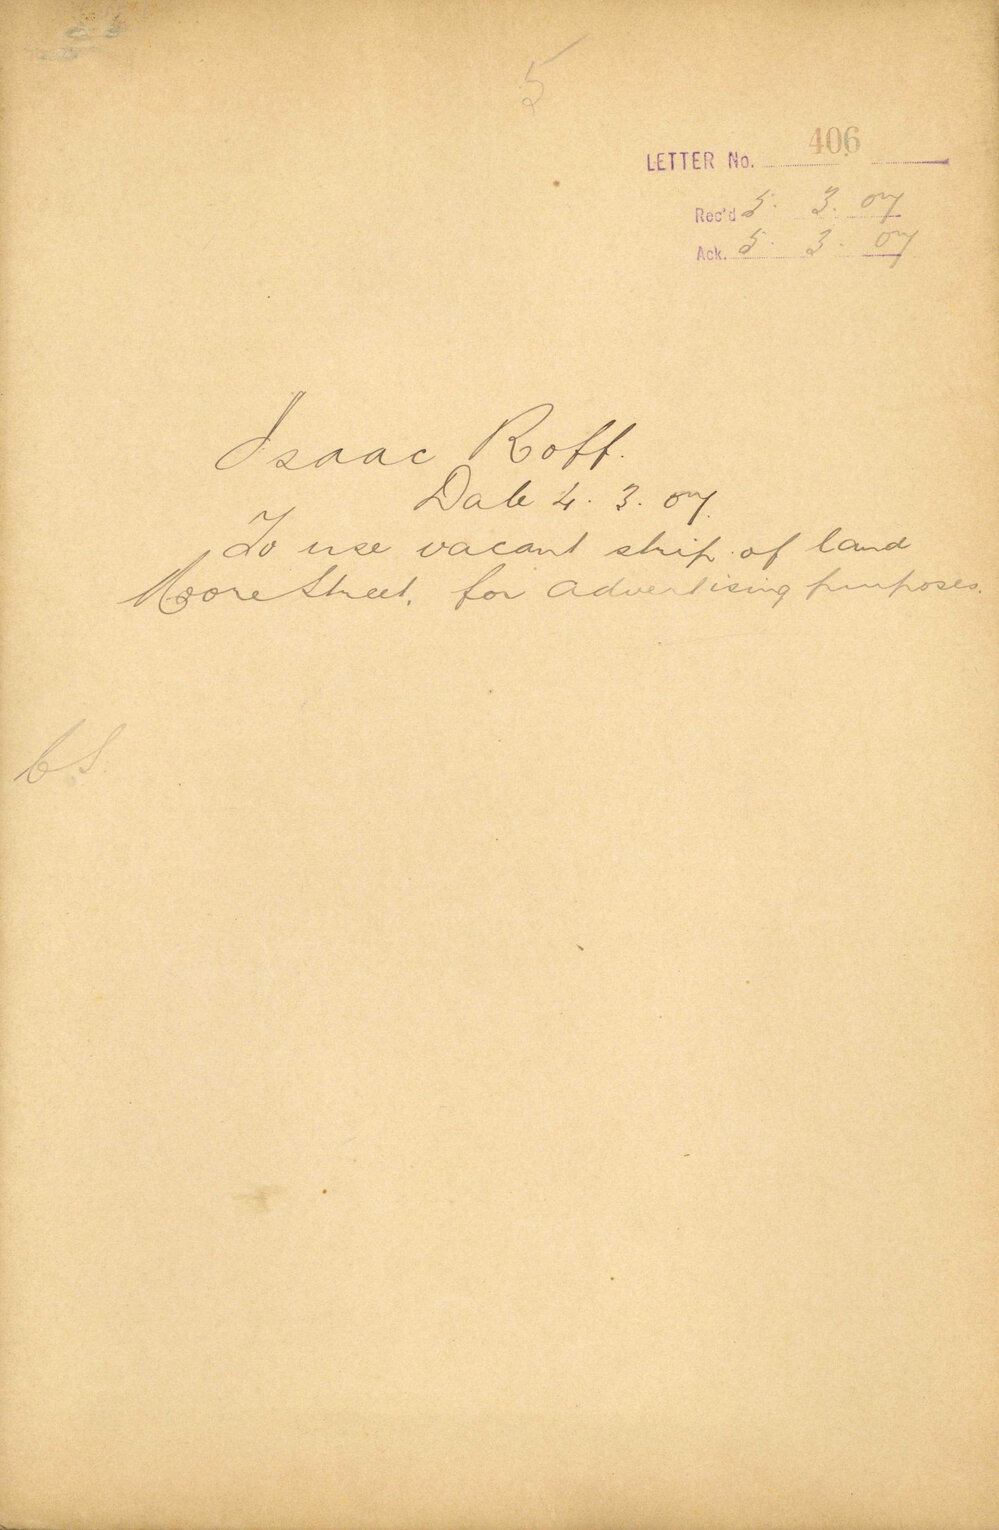 5
LETTER No. 406
Rec'd 5. 3. 07
Ack. 5. 3. 07
Isaac Roff.
Date 4. 3. 07.
To use vacant strip of land
Moore Street, for advertising purposes.